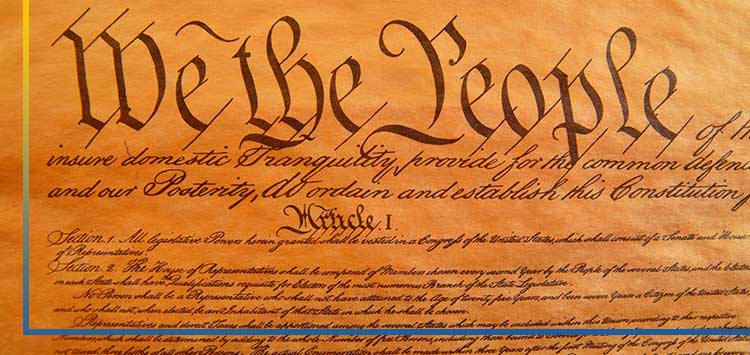 We the People of th
insure domestic Tranquility, provide for the common defence
and our Posterity, do ordain and establish this Constitution f
Article. I.
Section. 1. All legislative Powers herein granted shall be vested in a Congress of the United States, which shall consist of a Senate and House
of Representatives.
Section. 2. The House of Representatives shall be composed of Members chosen every second Year by the People of the several States, and the Electors
in each State shall have the Qualifications requisite for Electors of the most numerous Branch of the State Legislature.
No Person shall be a Representative who shall not have attained to the Age of twenty five Years, and been seven Years a Citizen of the United States,
and who shall not, when elected, be an Inhabitant of that State in which he shall be chosen.
Representatives and direct Taxes shall be apportioned among the several States which may be included within this Union, according to their respective
Numbers, which shall be determined by adding to the whole Number of free Persons, including those bound to
not taxed, three fifths of all other Persons. The actual Enumeration shall be made within three Years after the first Meeting of the Congress of the United States